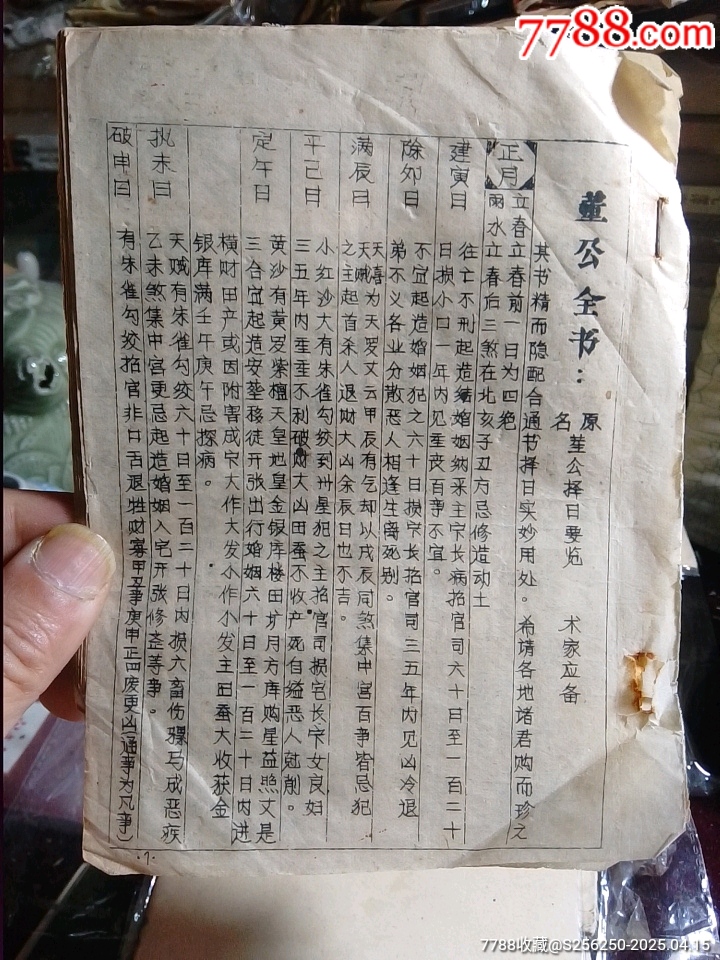 7788.com
董公全书：
原名 董公择日要览 术家应备
其书精而隐配合通书择日实妙用处。希请各地诸君购而珍之
正月
立春立春前一日为四绝
雨水立春后三煞在北亥子丑方忌修造动土
建寅日
往亡不刑起造结婚姻纳采主宅长病招官司六十日至一百二十
日损小口一年内见重丧百事不宜。
除卯日
不宜起造婚姻犯之六十日损宅长招官司三五年内见凶冷退
弟不义各业分散恶人相逢生离死别。
满辰日
天喜为天罗又云甲辰有气却以戌辰同煞集中宫百事皆忌犯
之主起首杀人退财大凶余辰日也不吉。
平己日
小红沙大有朱雀勾绞到州星犯之主招官司损宅长宅女良妇
三五年内重重不利破财大凶田蚕不收产死自缢恶人劫削。
定午日
黄沙有黄罗紫檀天皇地皇金银库楼田圹月方库购星益照丈是
三合宜起造安葬移徒开张出行婚姻六十日至一百二十日内进
横财田产或因附害成宅大作大发小作小发主田蚕大收获金
银库满壬午庚午忌探病。
执未日
天贼有朱雀勾绞六十日至一百二十日内损六畜伤骡马成恶疾
乙未煞集中宫更忌起造婚姻入宅开张修盖等事。
破申日
有朱雀勾绞招官非口舌退牲财寡甲孕事庚申正四废更凶（通事为凡事）
·1·
7788收藏@S256250-2025.04.15